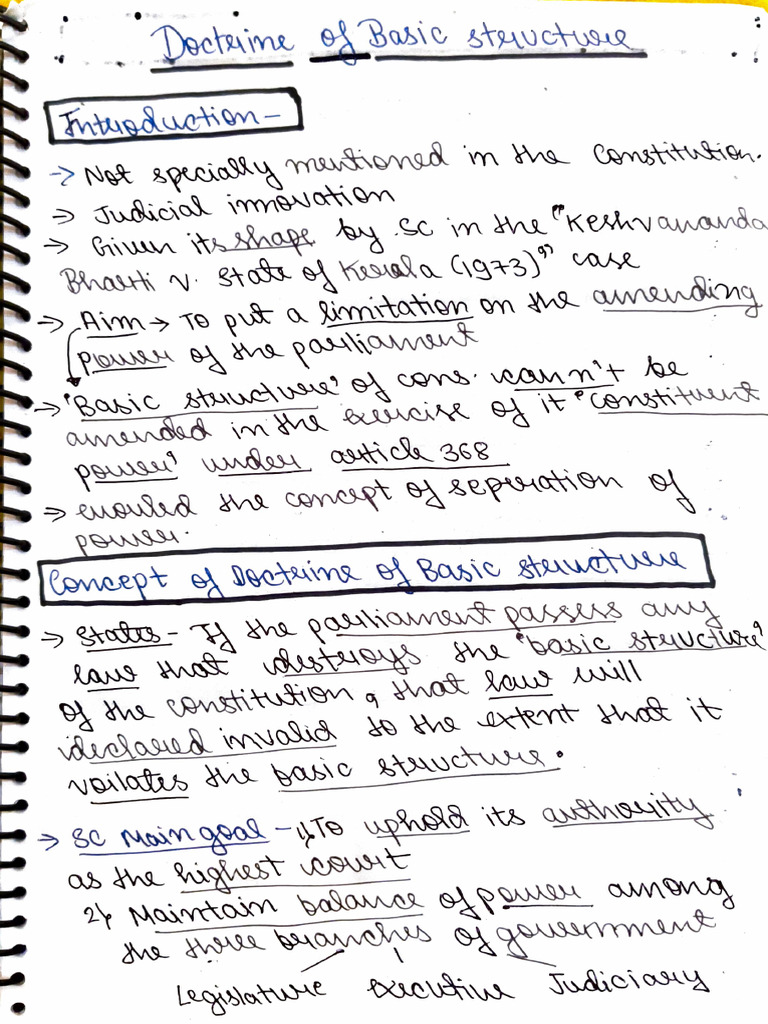 Doctrine of Basic structure
Introduction -
→ Not specially mentioned in the constitution.
→ Judicial innovation
→ Given its shape by SC in the "Keshvananda
Bharti v. State of Kerala (1973)" case
→ Aim → To put a limitation on the amending
power of the parliament
→ 'Basic structure' of cons. cann't be
amended in the exercise of it "constituent
power' under article 368
→ the concept of seperation of
power.
Concept of Doctrine of Basic structure
→ States - If the parliament passess any
law that destroys the 'basic structure'
of the constitution, that law will
declared invalid to the extent that it
voilates the basic structure.
→ SC Main goal - 1) To uphold its authority
as the highest court
2) Maintain balance of power among
the three branches of government
Legislature executive Judiciary